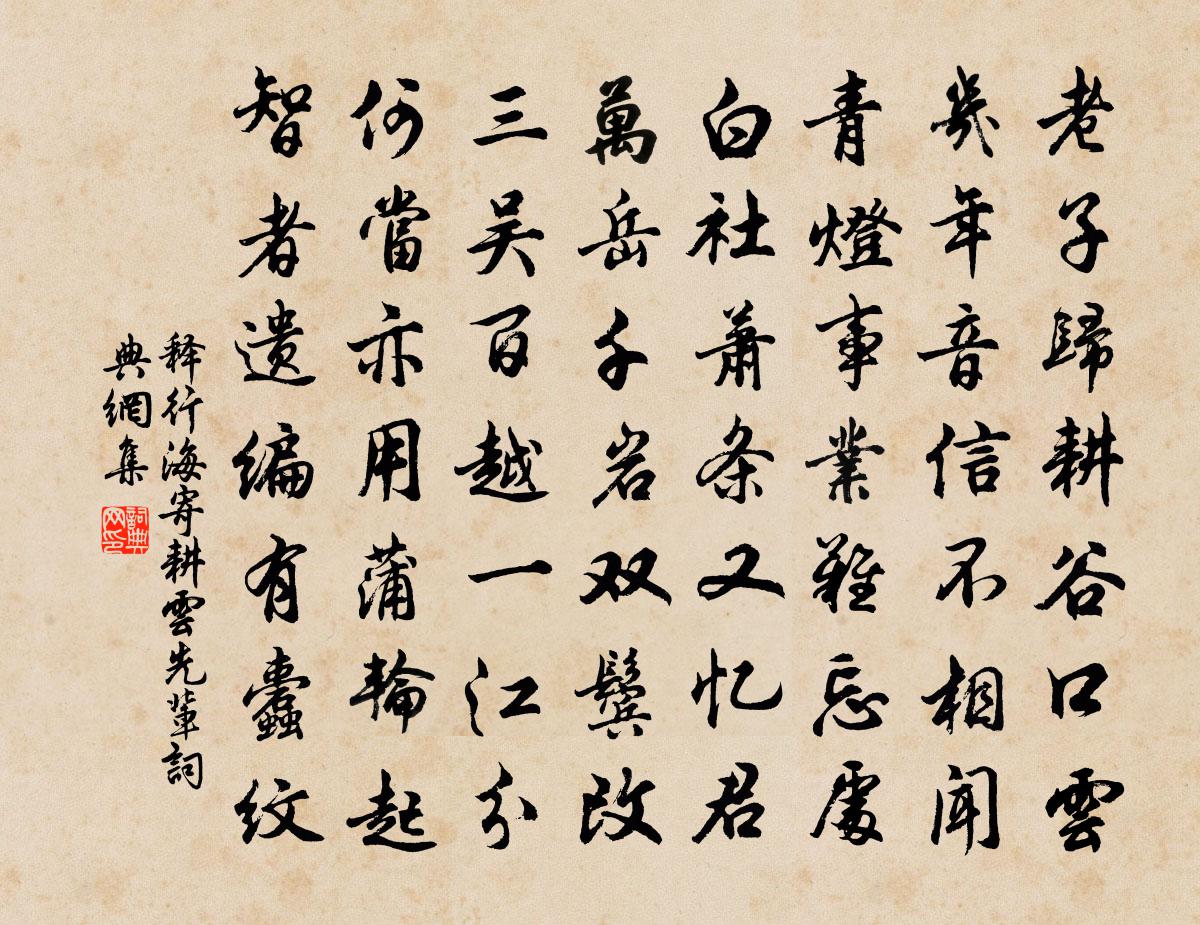 老子歸耕谷口雲
幾年音信不相闻
青燈事業難忘處
白社蕭条又忆君
萬岳千岩双鬓改
三吴百越一江分
何當亦用蒲輪起
智者遗编有蠹纹
释行海寄耕雲先輩詞
典網集
詞典
网印